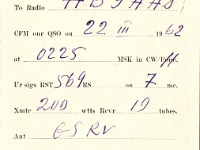 To Radio
CFM our QSO on 22 III 1962
at 0225 MSK in CW/Fone.
Ur sigs RST 569 RS on 7 mc.
Xmtr 200 wtts Rcvr 19 tubes.
Ant G5RV